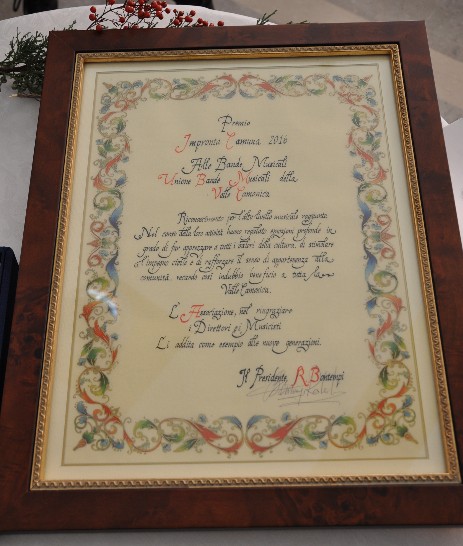 Premio
Impronta Camuna 2016
Alle Bande Musicali
Unione Bande Musicali della
Valle Camonica
Riconoscimento per l'alto livello musicale raggiunto
Nel corso della loro attività hanno regalato emozioni profonde in
grado di far apprezzare a tutti i valori della cultura, di stimolare
l'impegno civile e di rafforzare il senso di appartenenza alla
comunità, recando così indubbio beneficio a tutta la
Valle Camonica.
L'Associazione, nel ringraziare
i Direttori e i Musicisti
Li addita come esempio alle nuove generazioni.
Il Presidente, R Bontempi